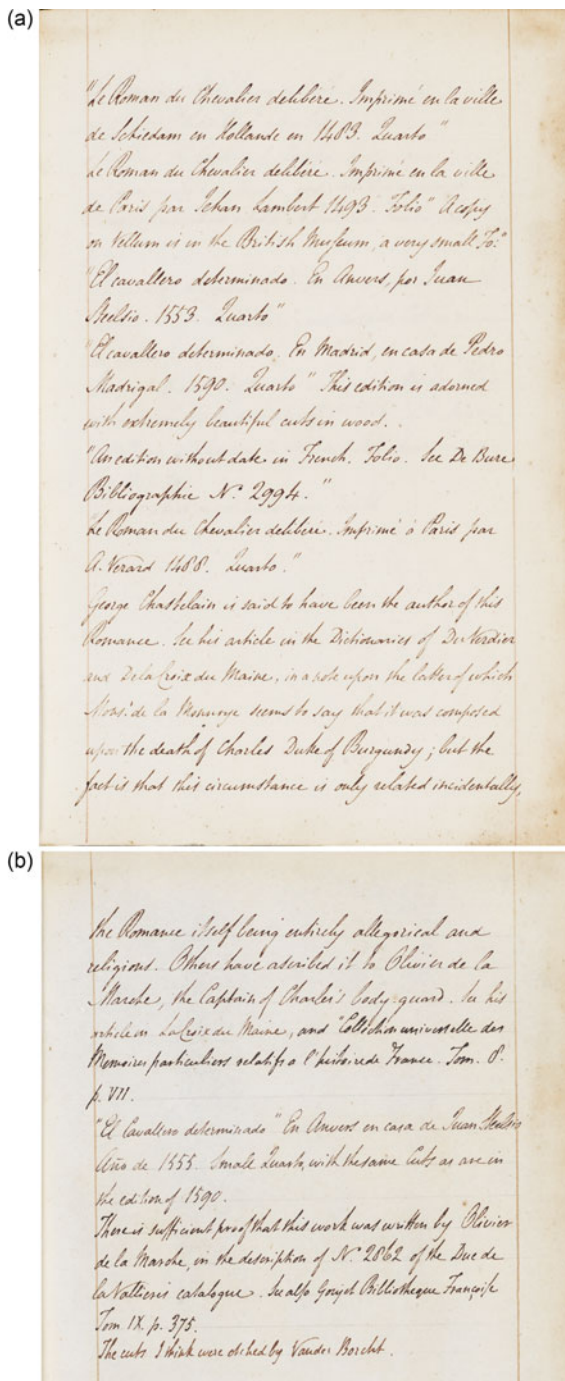 (a)
"Le Roman du Chevalier deliberé. Imprimé en la ville
de Schiedam en Hollande en 1483. Quarto"
Le Roman du Chevalier deliberé. Imprimé en la ville
de Paris par Jehan Lambert 1493. Folio" A copy
on Vellum is in the British Museum, a very small Fo:"
"El cavallero determinado. En Anvers, por Juan
Steelsio. 1553. Quarto"
"El cavallero determinado. En Madrid, en casa de Pedro
Madrigal. 1590. Quarto" This edition is adorned
with extremely beautiful cuts in wood.
"An edition without date in French. Folio. See De Bure
Bibliographie No. 2994."
"Le Roman du Chevalier deliberé. Imprimé à Paris par
A. Verard 1488. Quarto."
George Chastelain is said to have been the author of this
Romance. See his article in the Dictionaries of Du Verdier
and De la Croix du Maine, in a note upon the latter of which
Monsr. de la Monnoye seems to say that it was composed
upon the death of Charles Duke of Burgundy; but the
fact is that this circumstance is only related incidentally,
(b)
the Romance itself being entirely allegorical and
religious. Others have ascribed it to Olivier de la
Marche, the Captain of Charles's body guard. See his
article in La Croix du Maine, and "Collection universelle des
Memoires particuliers relatifs a l'histoire de France. Tom. 8.
p. VII.
"El Cavallero determinado" En Anvers en casa de Juan Steelsio
Año de 1555. Small Quarto, with the same Cuts as are in
the edition of 1590.
There is sufficient proof that this work was written by Olivier
de la Marche, in the description of No. 2862 of the Duc de
la Valliere's catalogue. See also Goujet Bibliotheque Françoise
Tom IX. p. 375.
The cuts I think were etched by Vander Borcht.